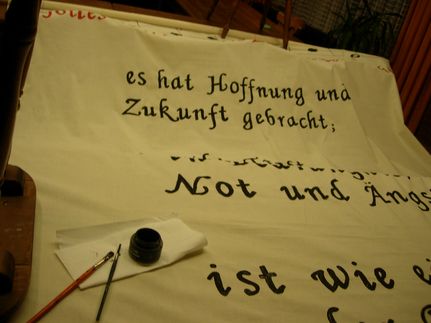 es hat Hoffnung und
Zukunft gebracht;
Not und Ängs
ist wie ei